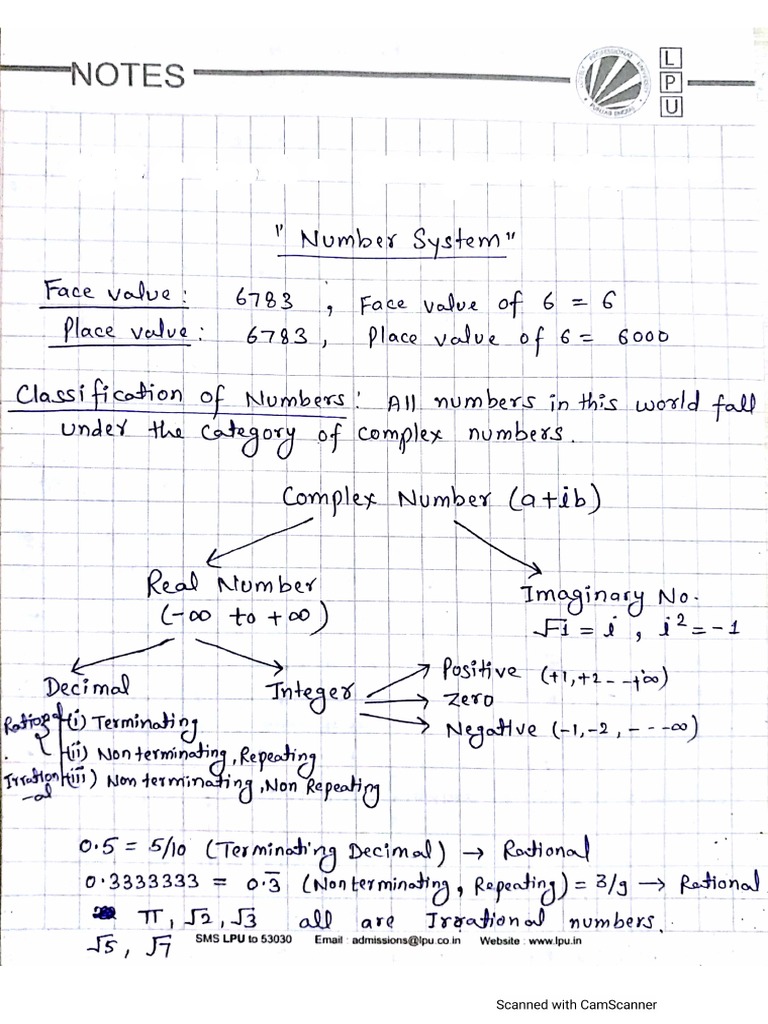 NOTES
L
P
U
" Number System "
Face value: 6783 , Face value of 6 = 6
Place value: 6783, Place value of 6 = 6000
Classification of Numbers: All numbers in this world fall
under the category of complex numbers.
Complex Number (a+ib)
Real Number
(-∞ to +∞)
Imaginary No.
√-1 = i , i² = -1
Decimal
Integer
Positive (+1,+2 - - +∞)
Zero
Negative (-1,-2, - - - ∞)
(i) Terminating
(ii) Non terminating, Repeating
Irration-al (iii) Non terminating, Non Repeating
0.5 = 5/10 (Terminating Decimal) → Rational
0.3333333 = 0.3̅ (Non terminating, Repeating) = 3/9 → Rational
π, √2, √3 all are Irrational numbers.
√5, √7
SMS LPU to 53030 Email : admissions@lpu.co.in Website : www.lpu.in
Scanned with CamScanner